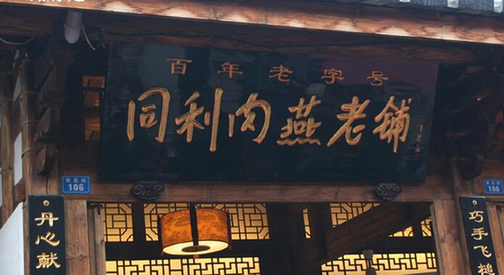 百年老字号
同利肉燕老铺
106
108
丹心献
巧手飞